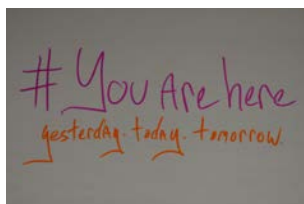 #You Are here
yesterday. today. tomorrow.